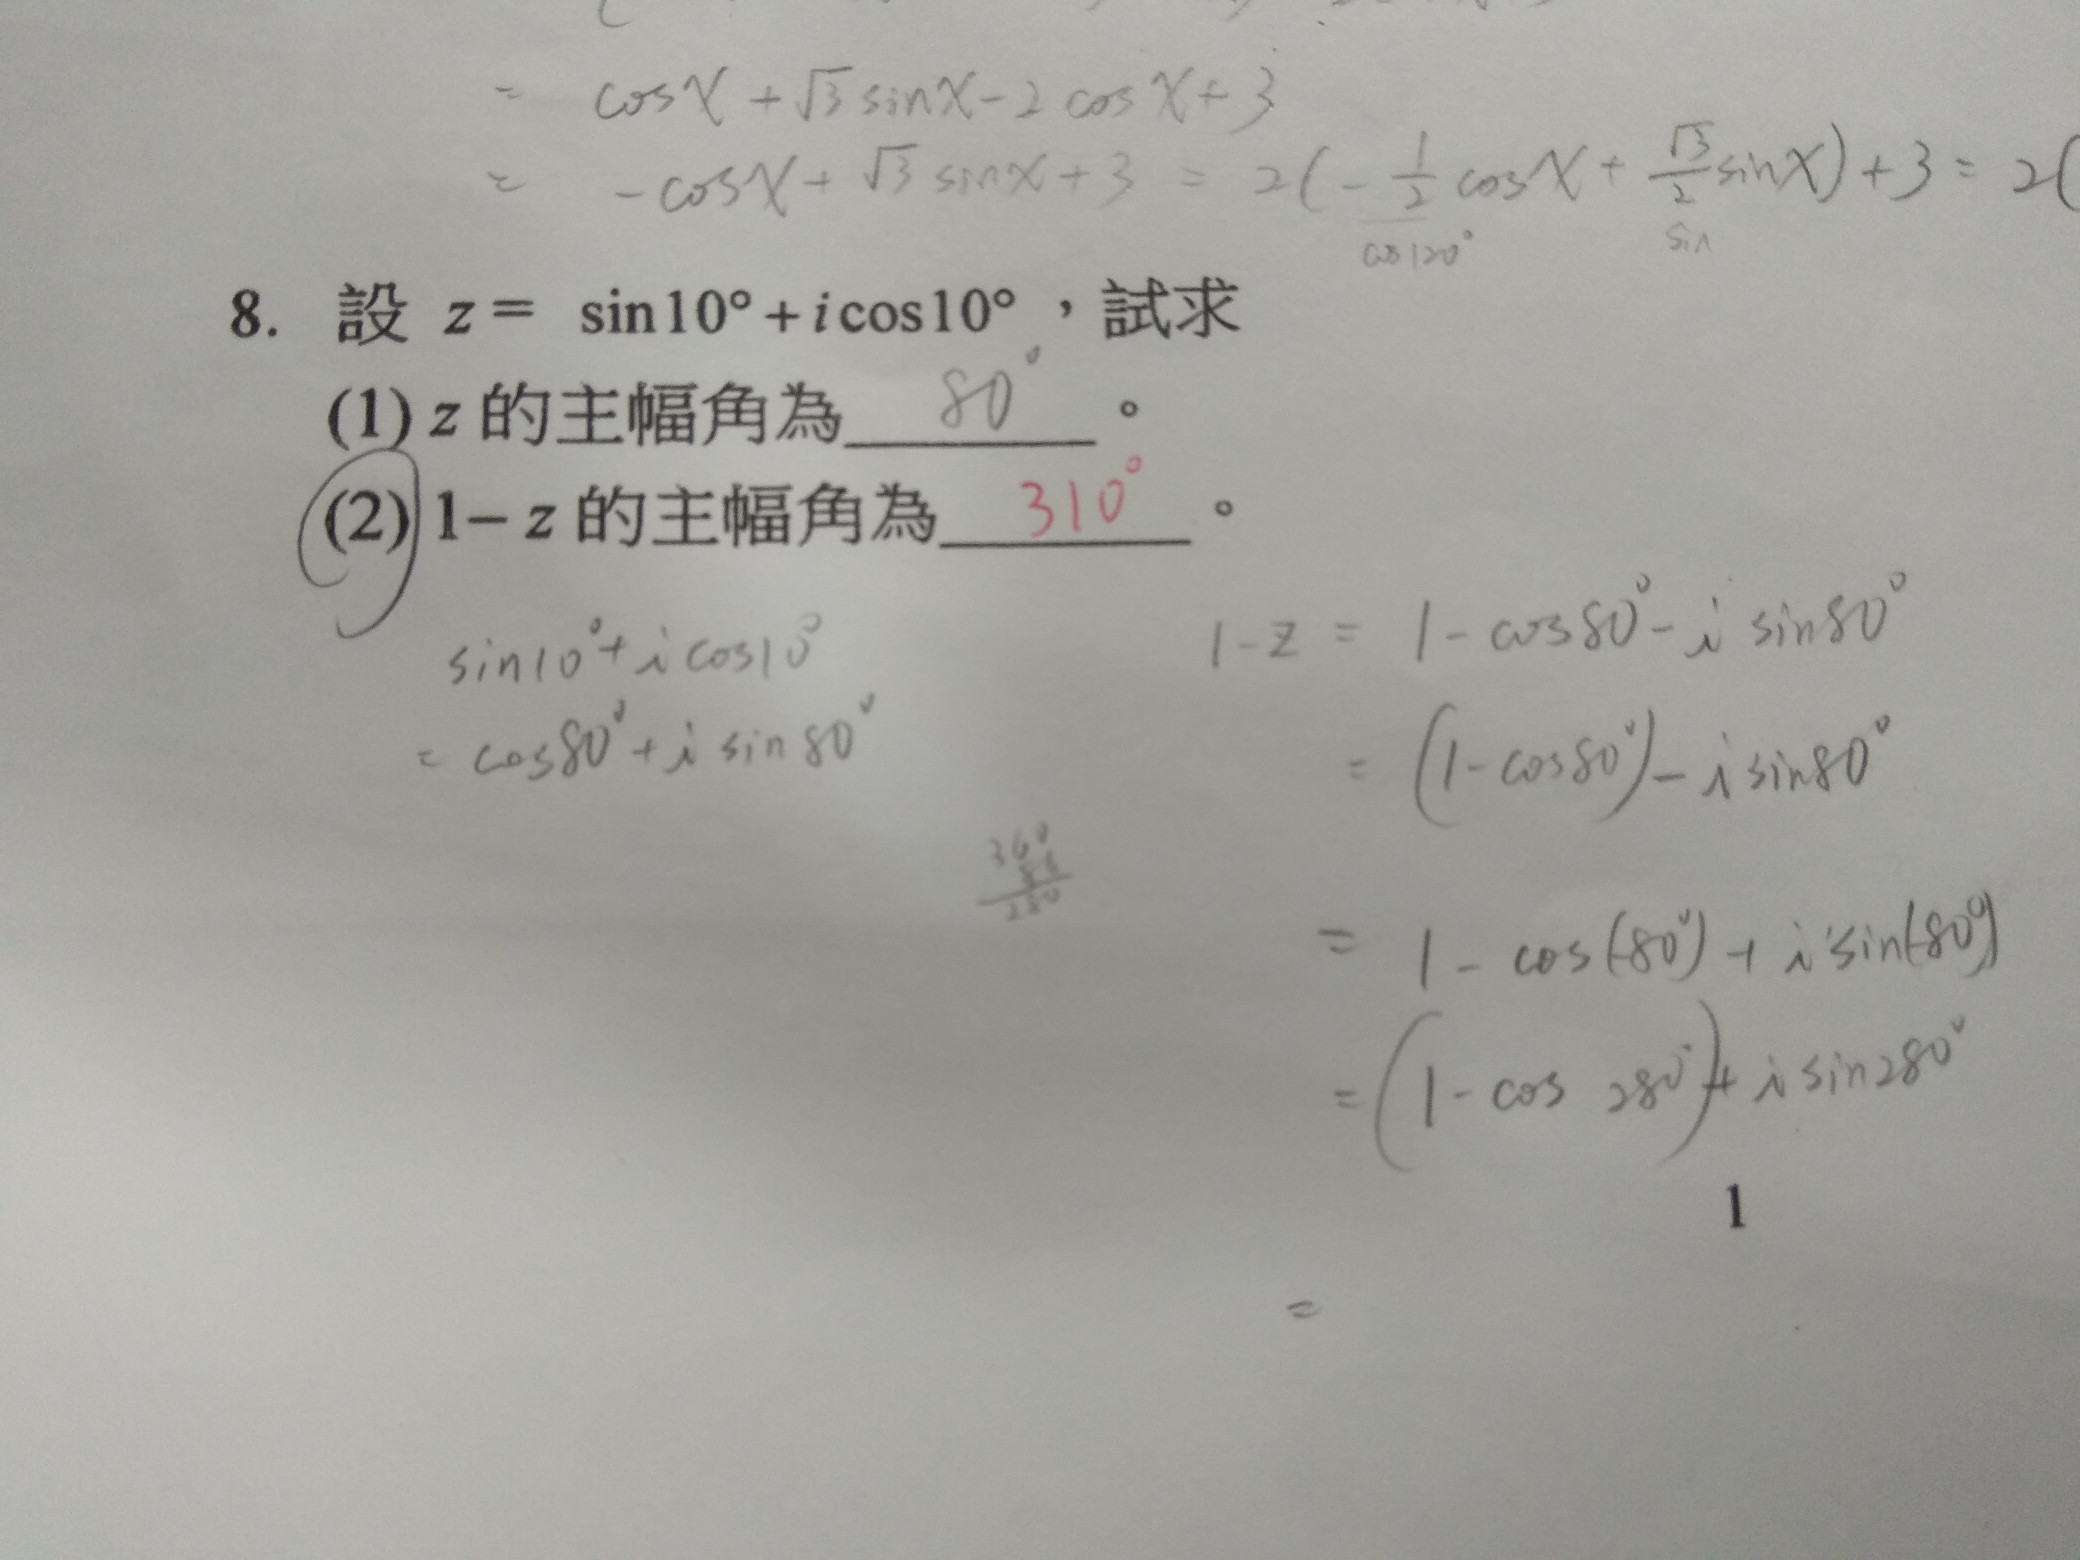 = cosx + √3 sinx - 2 cosx + 3
= - cosx + √3 sinx + 3 = 2(- 1/2 cosx + √3/2 sinx) + 3 = 2(
cos120° sin
8. 設 z = sin10° + i cos10° ，試求
(1) z 的主幅角為 80° 。
(2) 1 - z 的主幅角為 310° 。
sin10° + i cos10°
= cos80° + i sin80°
1 - z = 1 - cos80° - i sin80°
= (1 - cos80°) - i sin80°
360
80
280
= 1 - cos(-80°) + i sin(-80°)
= (1 - cos 280°) + i sin280°
1
=